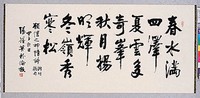 春水滿
四澤
夏雲多
奇峯
秋月揚
明輝
冬嶺秀
寒松